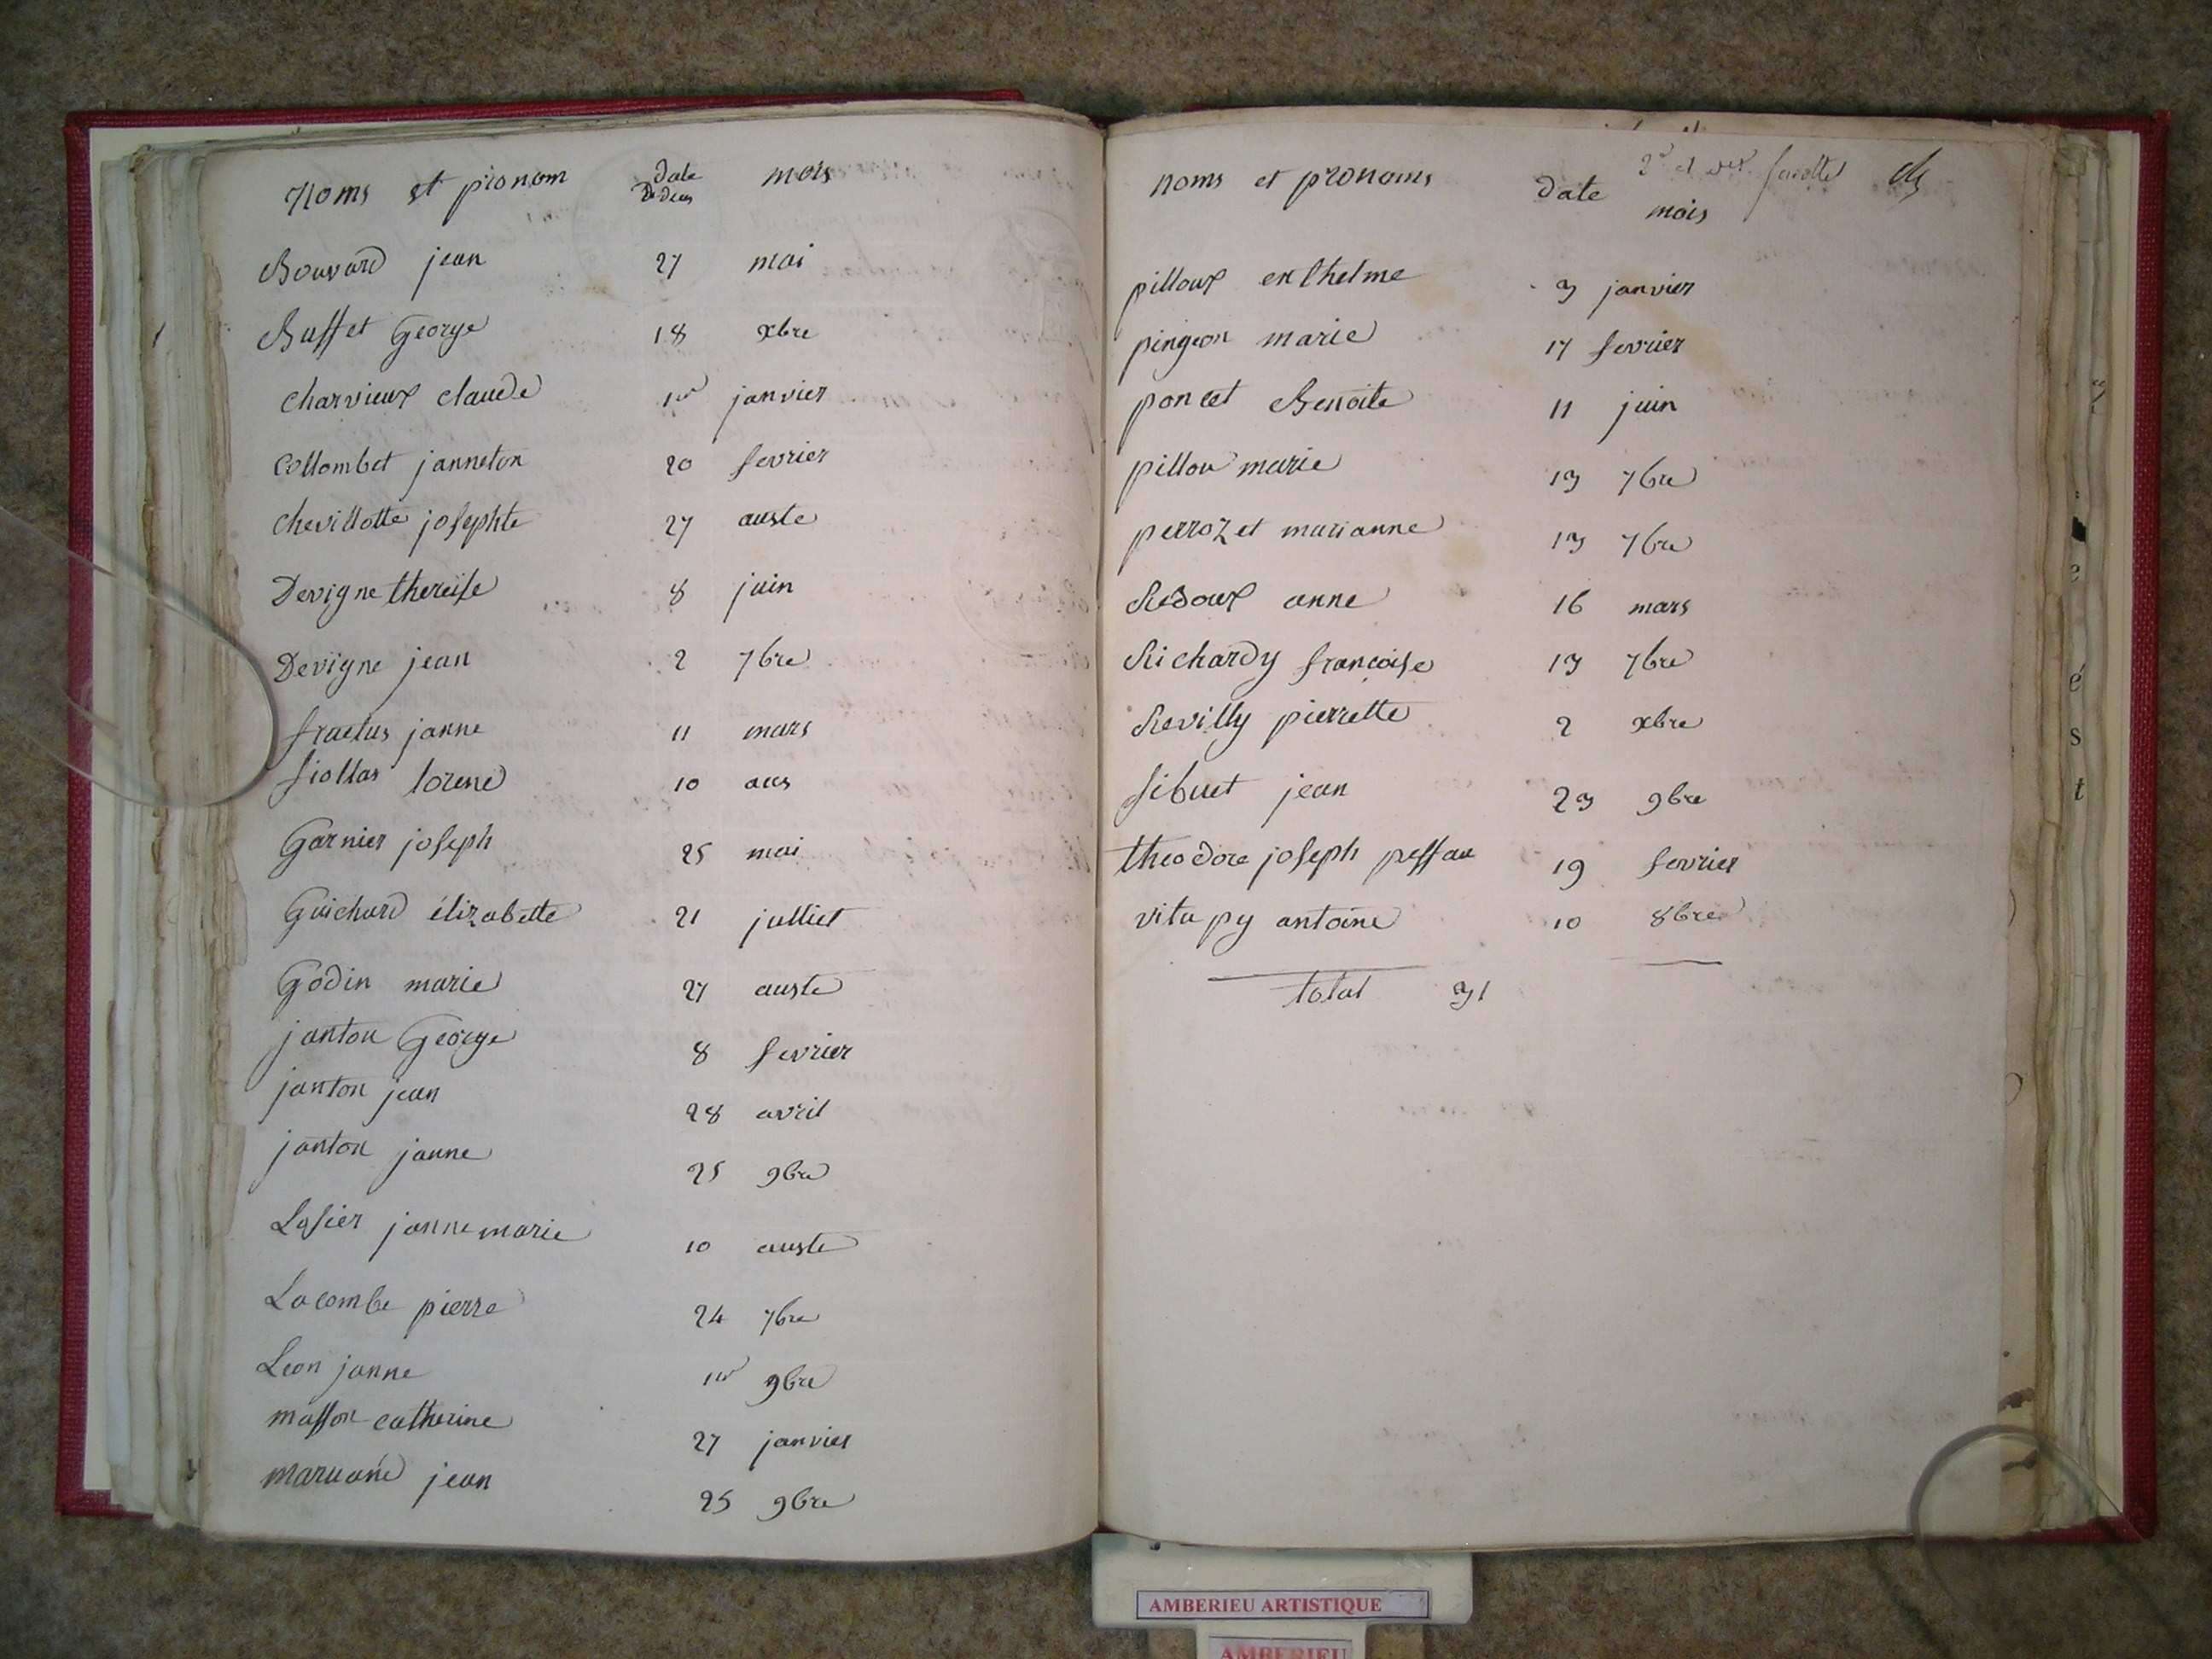 Noms et pronom date Dedeces mois
Bouvard jean 27 mai
Buffet George 18 xbre
Charvieux claude 1er janvier
Collombet janneton 20 fevrier
Chevillotte josephte 27 auste
Devigne thereise 8 juin
Devigne jean 2 7bre
fractus janne 11 mars
fiollas lorene 10 aus
Garnier joseph 25 mai
Guichard élizabette 21 julliet
Godin marie 27 auste
janton George 8 fevrier
janton jean 28 avril
janton janne 25 9bre
Lasier janne marie 10 auste
Lacombe pierre 24 7bre
Leon janne 1er 9bre
masson catherine 27 janvier
jean 25 9bre
noms et pronoms date mois
pilloux enthelme 3 janvier
pingeon marie 17 fevrier
poncet Benoite 11 juin
pillou marie 13 7bre
perrozet marianne 13 7bre
Redoux anne 16 mars
Richardy françoise 13 7bre
Revilly pierrette 2 xbre
sibuet jean 23 9bre
theodore joseph 19 fevrier
vitupy antoine 10 8bre
total 31
AMBERIEU ARTISTIQUE
AMBERIEU